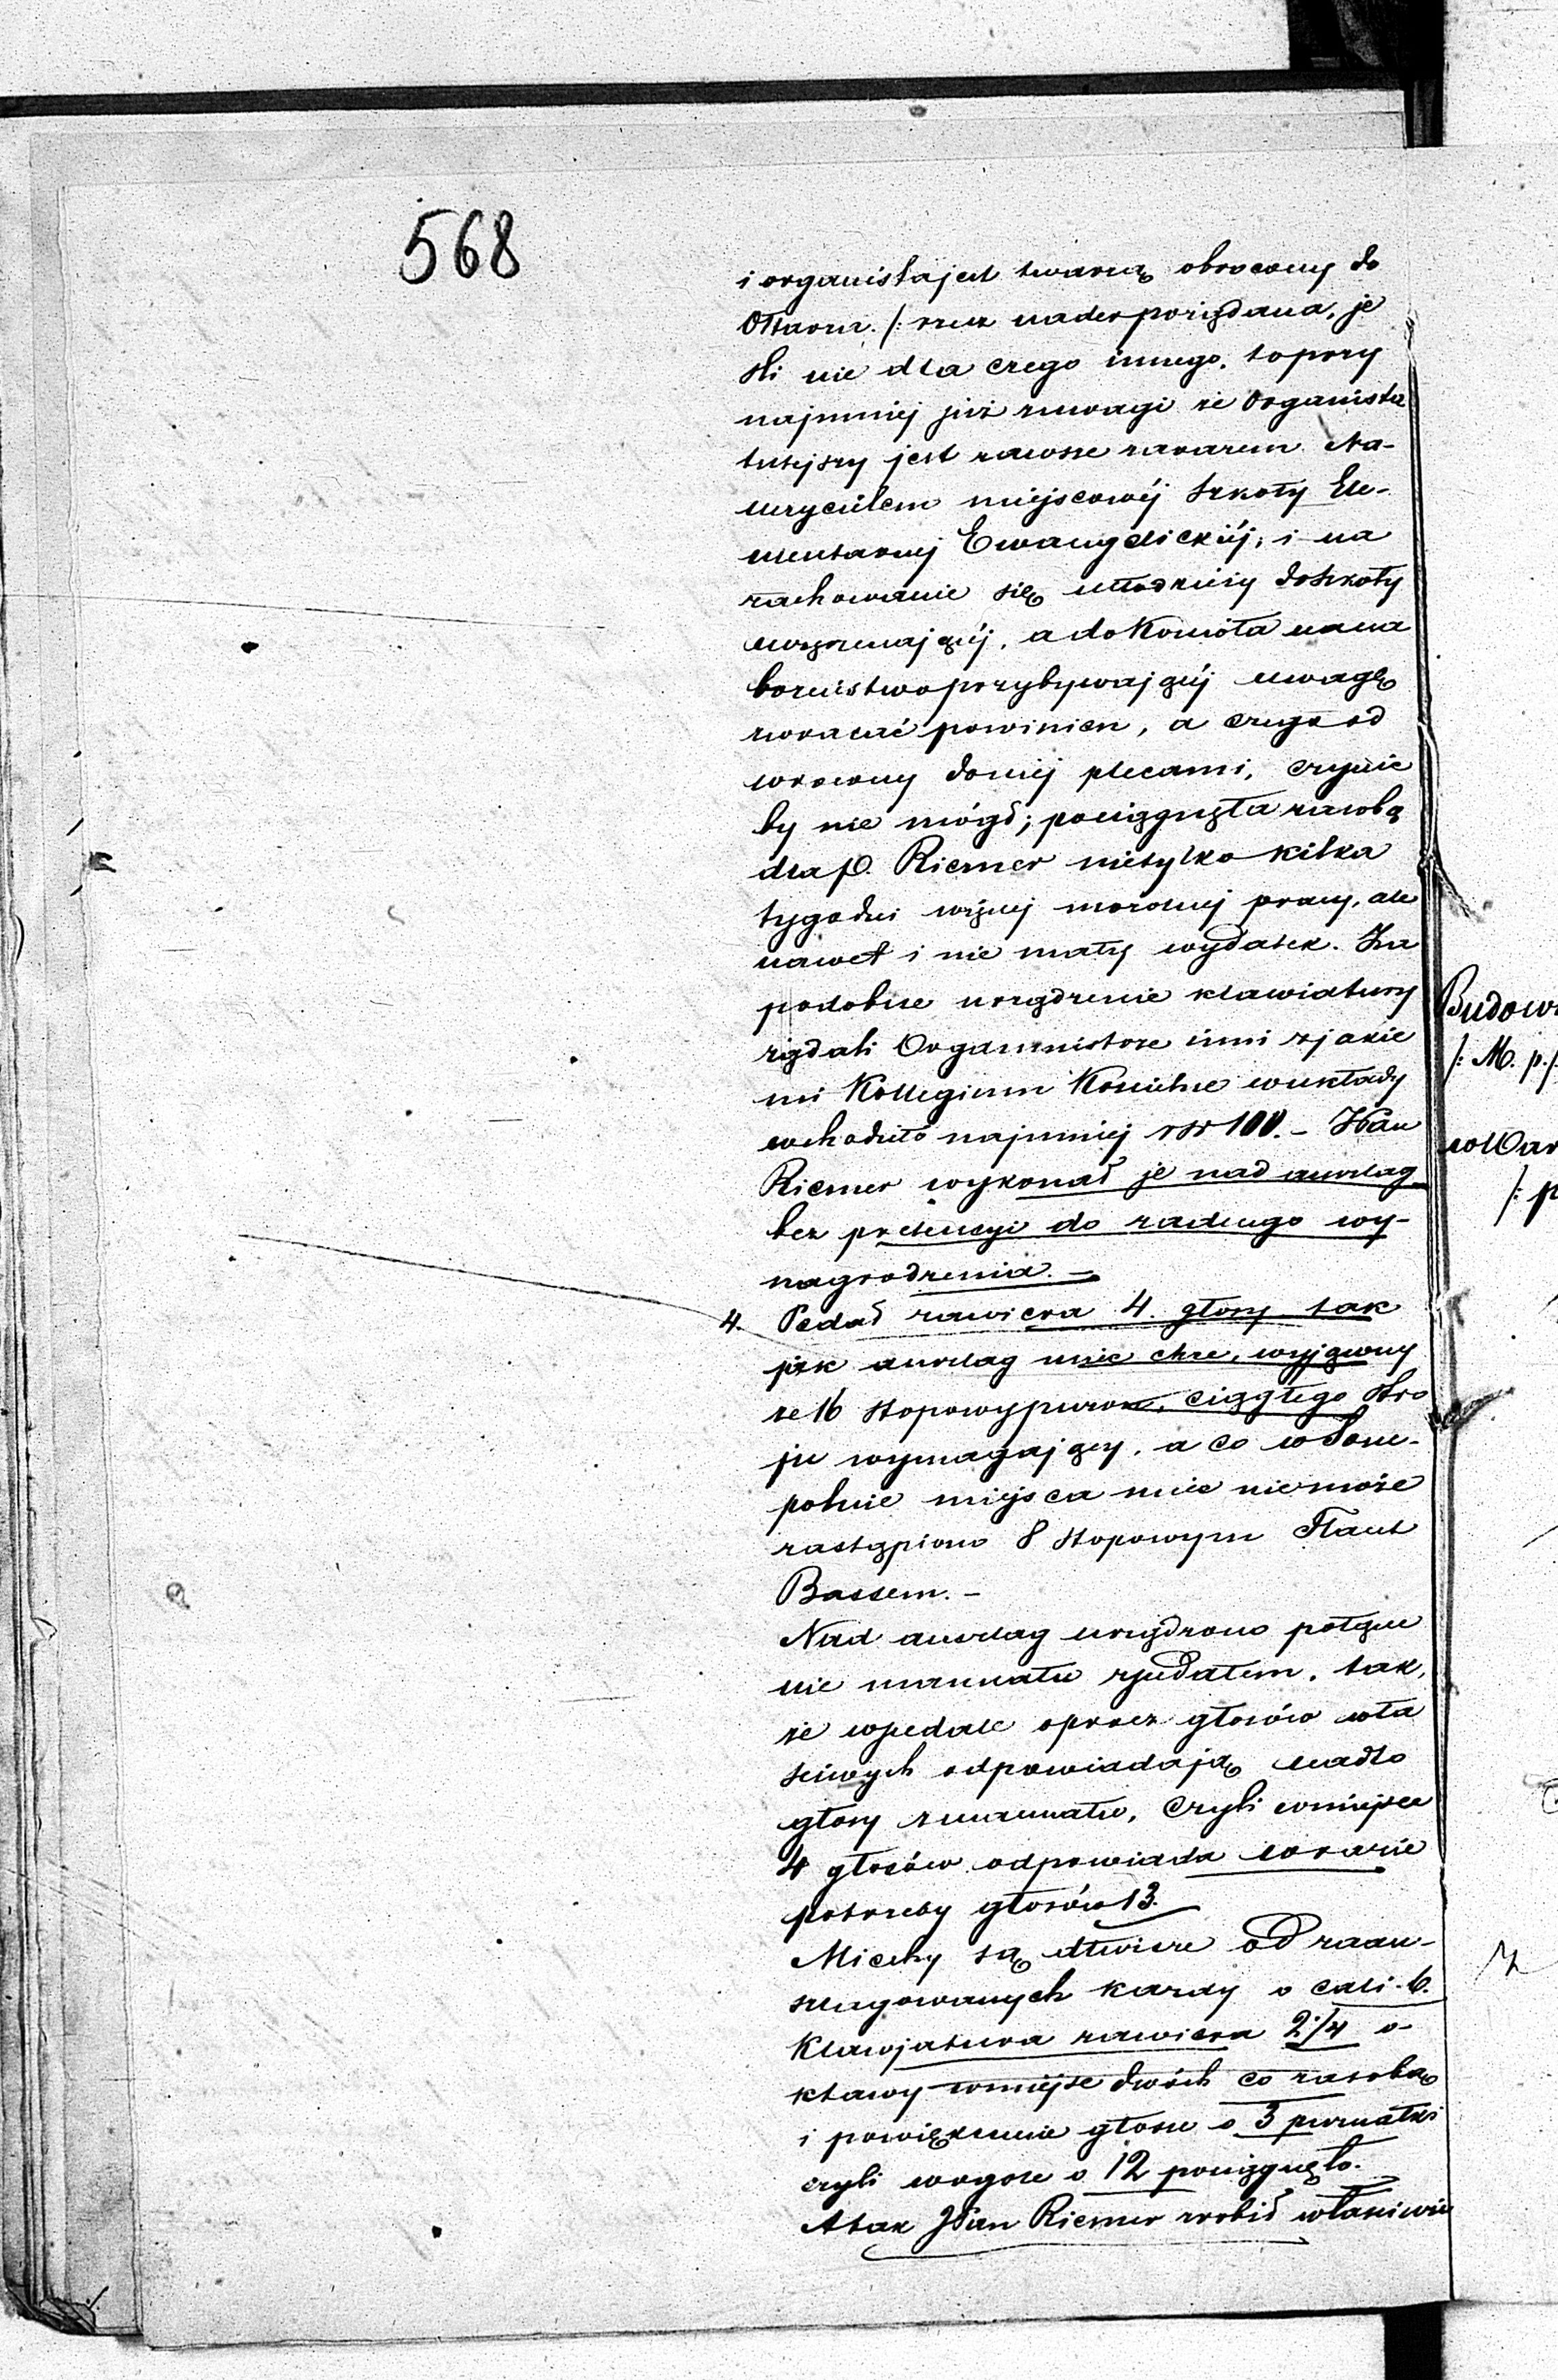 568
i organista jest twarzą obrócony do
Ołtarza. /: rzecz nader porządana, je
śli nie dla czego innego, to przy
najmniej już z uwagi że Organista
tutejszy jest zawsze zarazem Na-
uczycielem miejscowéj Szkoły Ele-
mentarnej Ewangelickiéj, i na
zachowanie się młodzieży do szkoły
uczęszczającéj, a do Kościoła na na
bożeństwo przybywającéj uwagę
zwracać powinien, a czego od
wrócony do niéj plecami, czynić
by nie mógł; pociągnęła za sobą
dla p. Riemer nietylko kilka
tygodni więcej mozolnej pracy, ale
nawet i nie mały wydatek. Za
podobne urządzenie klawiatury
żądali Orgamnistrze inni z jakie
mi Kollegium Kościelne w układy
wchodziło najmniej rsr 100. – Pan
Riemer wykonał je nad anszlag
bez pretensyi do żadnego wy-
nagrodzenia. –
4. Pedał zawiera 4. głosy tak
jak anszlag mieć chce, wyjąwszy
że 16 stopowy puzon, ciągłego stro
ju wymagający, a co w Tom-
polnie miejsca mieć nie może
zastąpiono 8 stopowym Flaut
Bassem. –
Nad anszlag urządzono połącze
nie manuału z pedałem, tak,
że w pedale oprócz głosów wła
ściwych odpowiadają nadto
głosy z manuału, czyli w miejsce
4 głosów odpowiada w razie
potrzeby głosów 13.
Miechy są dłuższe od zaan-
szlagowanych każdy o cali 6.
Klawjatura zawiera 2¼ o-
ktawy w miejsce dwóch co za sobą
i powiększenie głosu o 3 piszczałki
czyli w ogóle o 12 pociągnęło.
A tak JPan Riemer zrobił właściwie
Budow
/: M. p. /:
w War
/: p